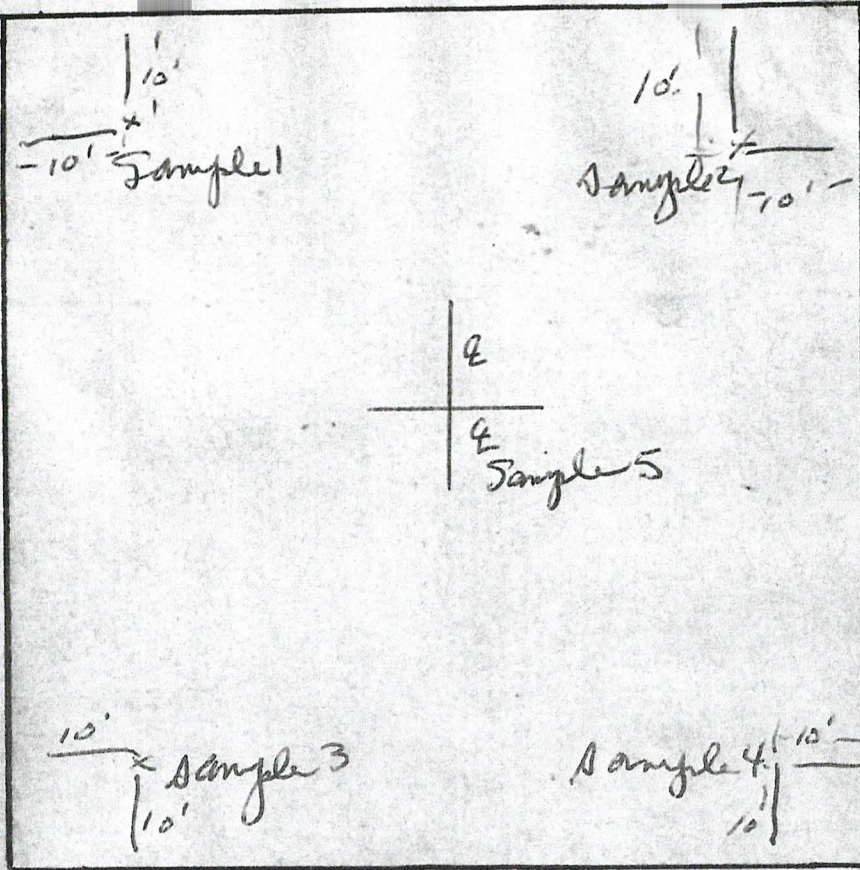 10'
-10'-
Sample 1
10'
Sample 2
-10'-
℄
℄
Sample 5
10'
Sample 3
10'
Sample 4
-10'-
10'